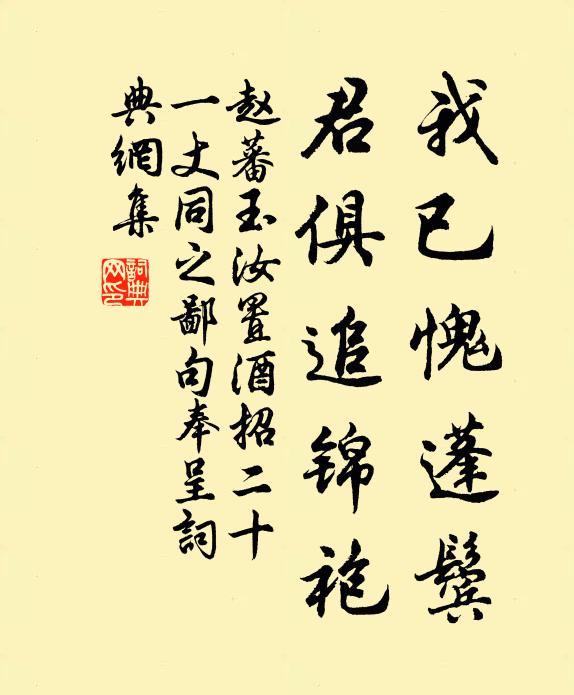 我已愧蓬鬓
君俱追锦袍
赵蕃玉汝置酒招二十
一丈同之鄙句奉呈詞
典網集
詞典
网印